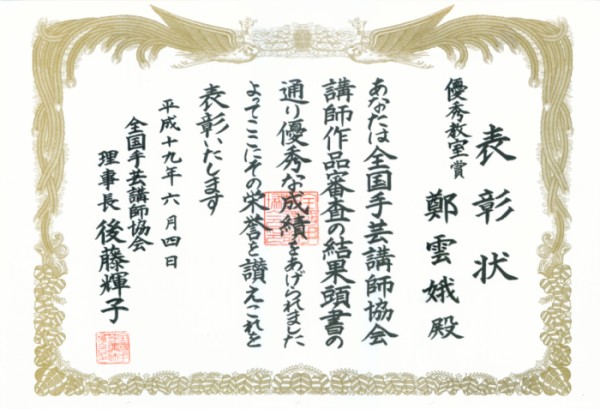 表彰状
優秀教室賞
鄭雲娥殿
あなたは全国手芸講師協会
講師作品審査の結果頭書の
通り優秀な成績をあげられました
よってここにその栄誉を讃えこれを
表彰いたします
平成十九年六月四日
全国手芸講師協会
理事長 後藤輝子